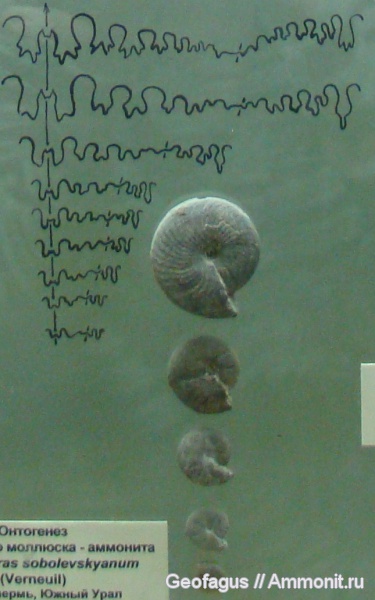 Онтогенез
моллюска - аммонита
sobolevskyanum
(Verneuil)
Южный Урал
Geofagus // Ammonit.ru